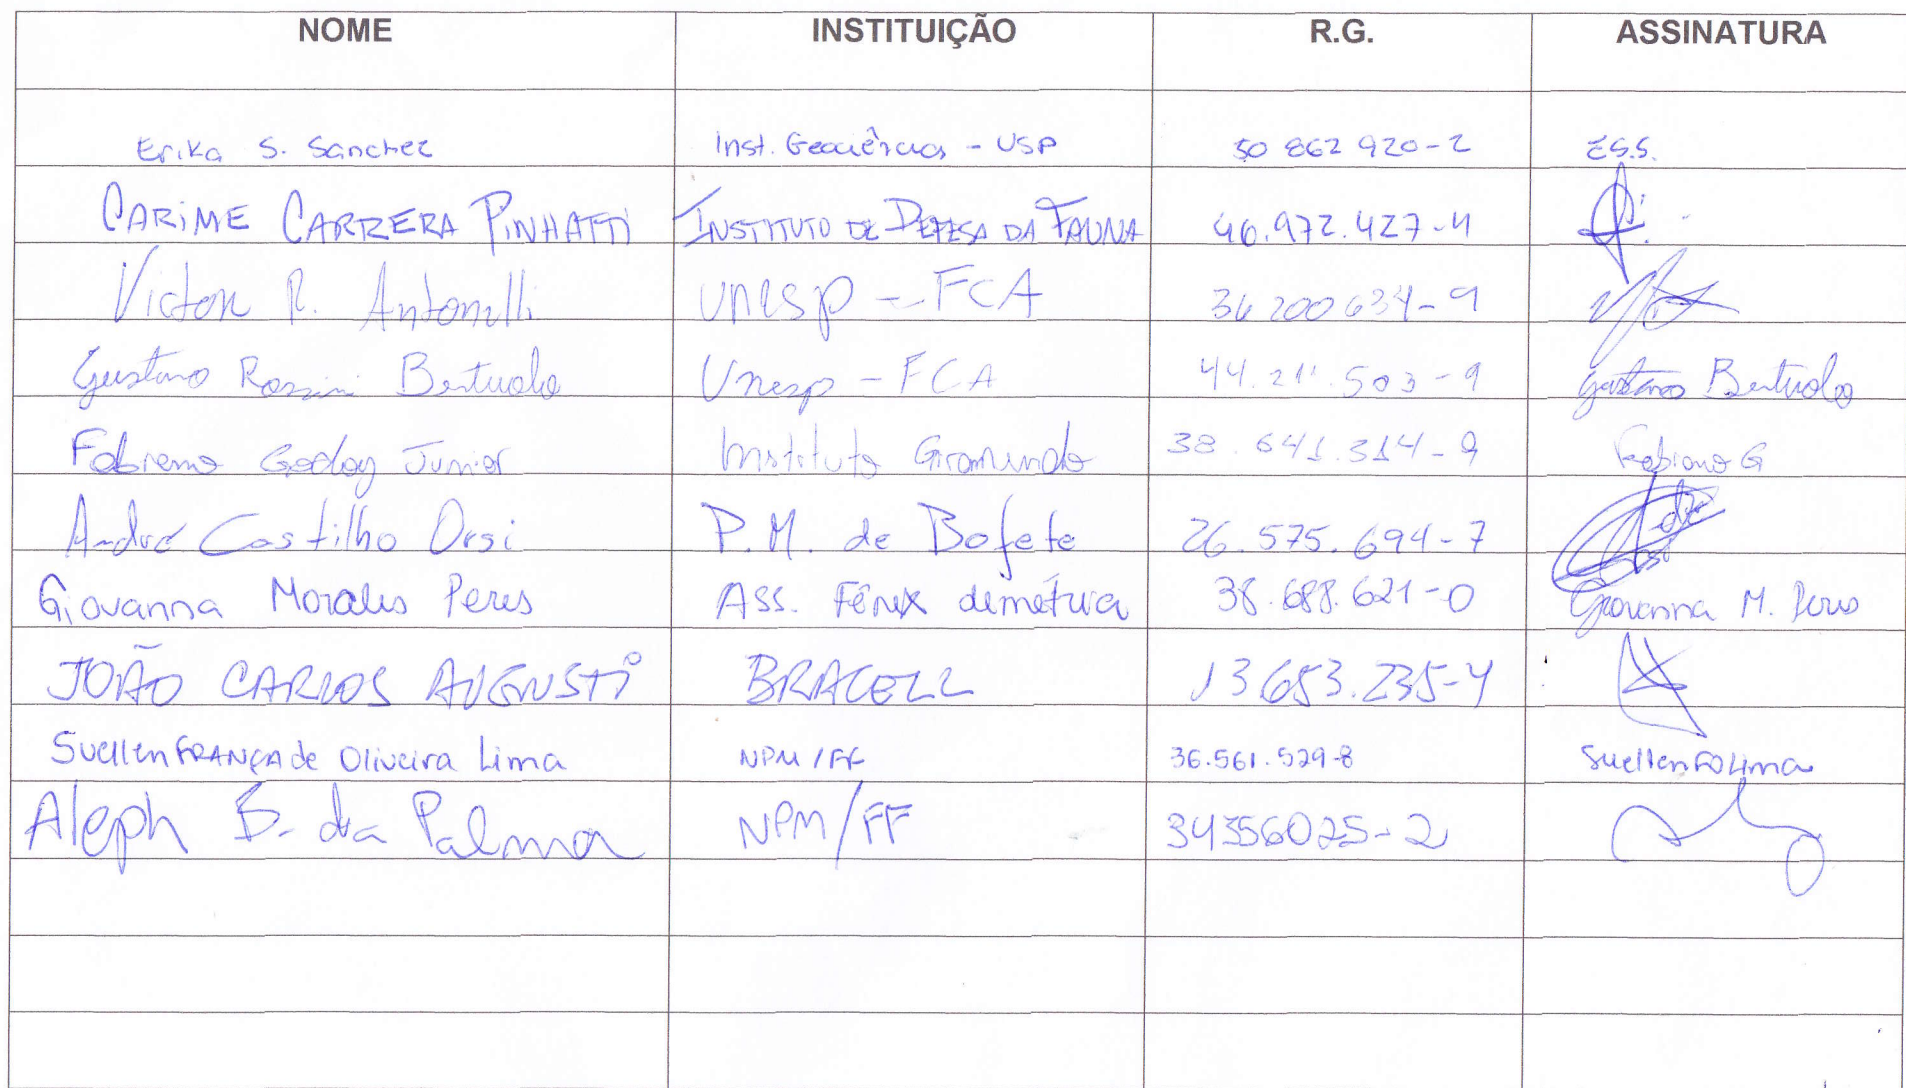 NOME INSTITUIÇÃO R.G. ASSINATURA
Erika S. Sanchez Inst. Geociências - USP 50 862 920-2 E.S.S.
CARIME CARRERA PINHATTI INSTITUTO DE DEFESA DA FAUNA 46.972.427-4
Victor R. Antonelli unesp - FCA 36 200 634-9
Gustavo Rossini Bertuolo Unesp - FCA 44.211.503-9 Gustavo Bertuolo
Fabiano Godoy Junior Instituto Giramundo 38.641.314-9 Fabiano G
André Castilho Orsi P.M. de Bofete 26.575.694-7
Giovanna Morales Peres Ass. Fênix demétria 38.688.621-0 Giovanna M. Peres
JOÃO CARLOS AUGUSTI BRACELL 13.653.235-4
Suellen FRANÇA de Oliveira Lima NPM/FF 36.561.529-8 Suellen FO Lima
Aleph B. da Palma NPM/FF 34356025-2